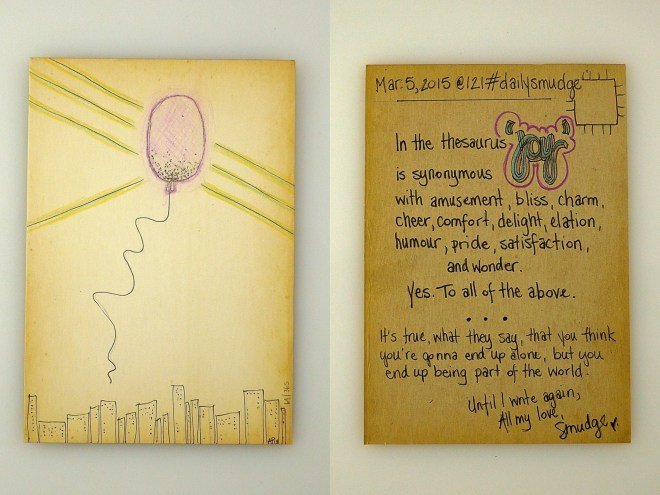 Mar. 5, 2015 @121#dailysmudge
In the thesaurus "joy"
is synonymous
with amusement, bliss, charm,
cheer, comfort, delight, elation,
humour, pride, satisfaction,
and wonder.
Yes. To all of the above.
It's true, what they say, that you think
you're gonna end up alone, but you
end up being part of the world.
Until I write again,
All my love,
Smudge